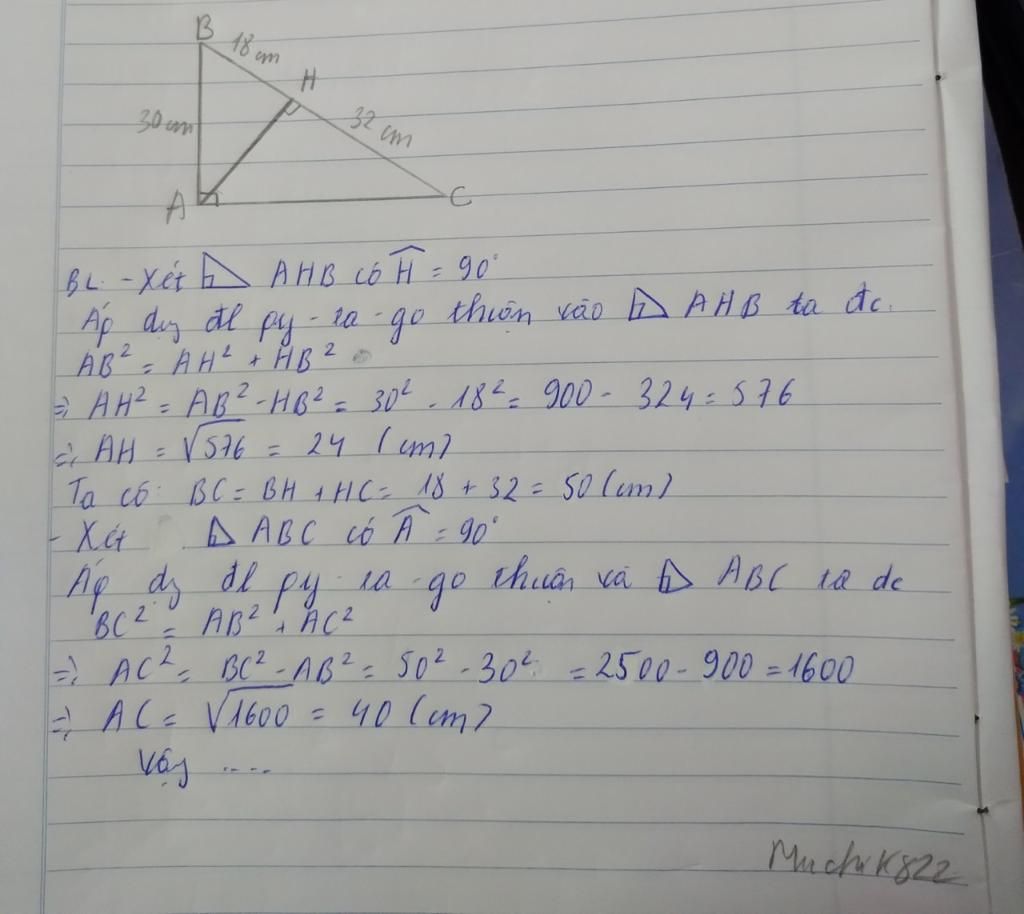 B
18 cm
H
30 cm
32 cm
A
C
BL. - Xét AHB có Ĥ = 90°
Áp dg đl py-ta-go thuận vào AHB ta đc.
AB² = AH² + HB²
=> AH² = AB² - HB² = 30² - 18² = 900 - 324 = 576
=> AH = √576 = 24 (cm)
Ta có: BC = BH + HC = 18 + 32 = 50 (cm)
- Xét ABC có Â = 90°
Áp dg đl py-ta-go thuận và ABC ta dc
BC² = AB² + AC²
=> AC² = BC² - AB² = 50² - 30² = 2500 - 900 = 1600
=> AC = √1600 = 40 (cm)
Vậy ....
MuchiK822